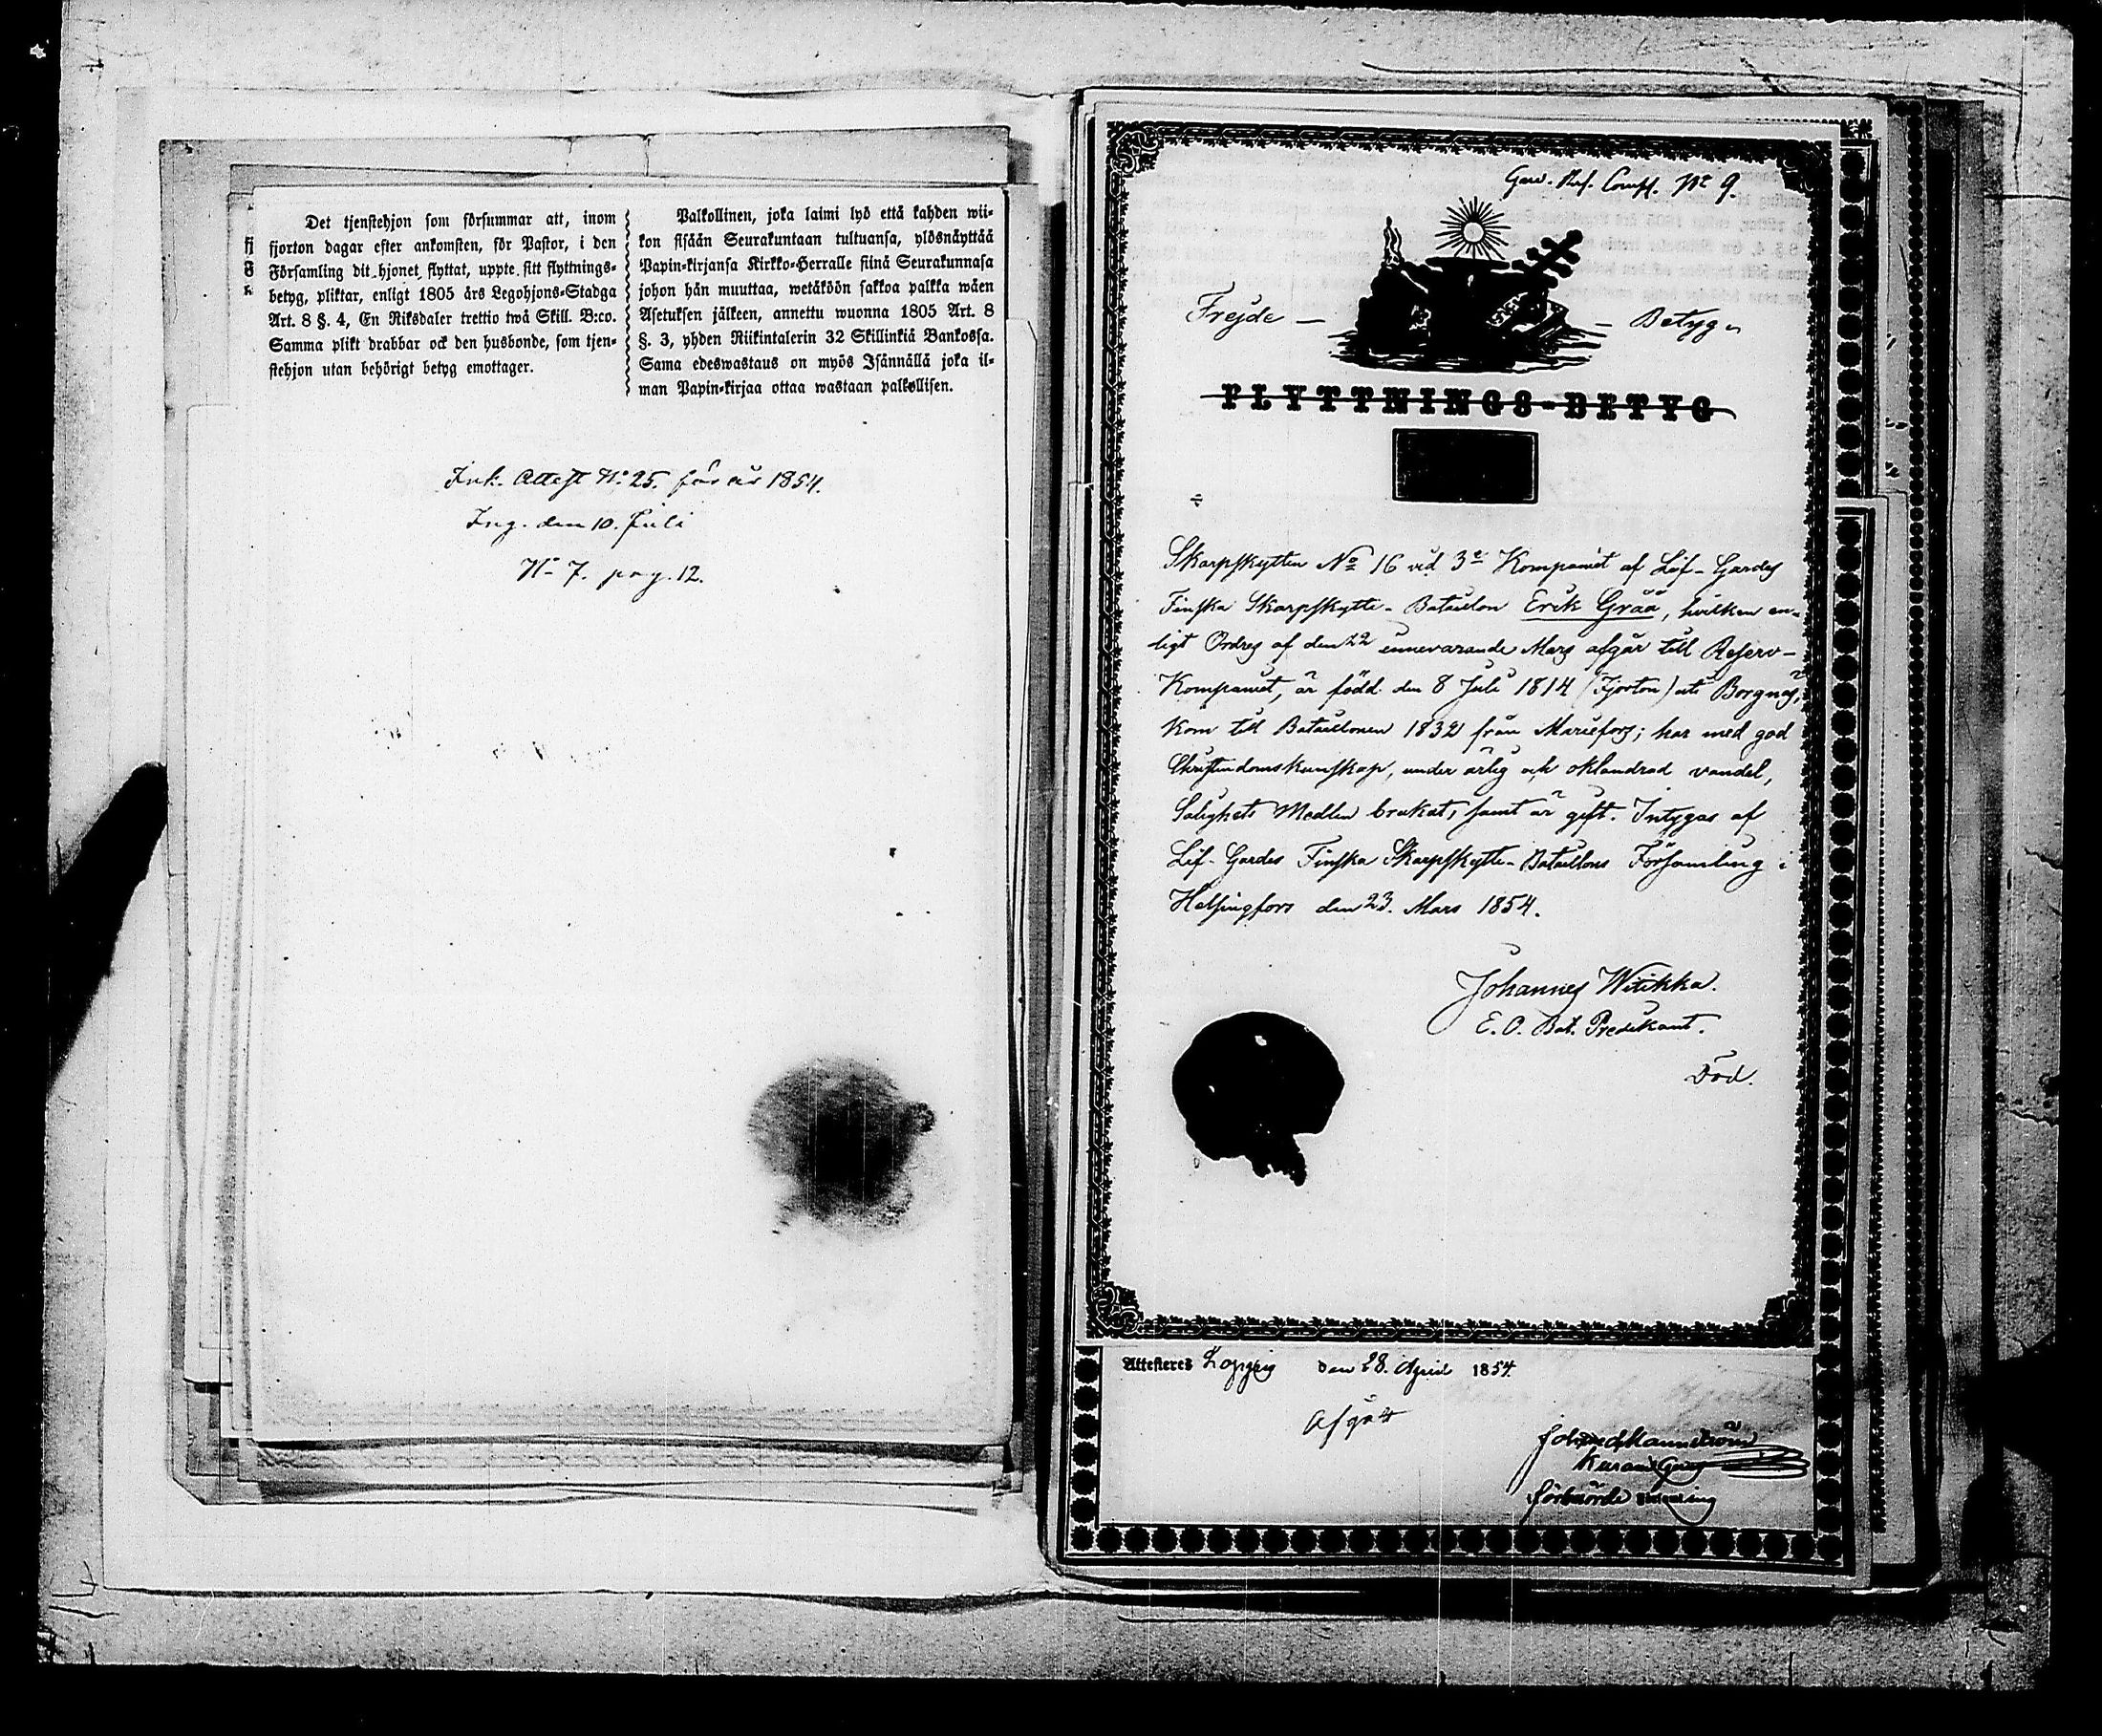 Det tjenstehjon som försummar att, inom
fjorton dagar efter ankomsten, för Pastor, i den
Församling dit hjonet flyttat, uppte sitt flyttnings-
betyg, pliktar, enligt 1805 års Legohjons-Stadga
Art. 8 §. 4, En Riksdaler trettio twå Skill. B:co.
Samma plikt drabbar ock den husbonde, som tjen-
stehjon utan behörigt betyg emottager.
Palkollinen, joka laimi lyö että kahden wii-
kon sisään Seurakuntaan tultuansa, ylösnäyttää
Papin-kirjansa Kirkko-Herralle siinä Seurakunnasa
johon hän muuttaa, wetäköön sakkoa palkka wäen
Asetuksen jälkeen, annettu wuonna 1805 Art. 8
§. 3, yhden Riikintalerin 32 Skillinkiä Bankossa.
Sama edeswastaus on myös Isännällä joka il-
man Papin-kirjaa ottaa wastaan palkollisen.
Ink. Attest N:o 25. för år 1854.
Ing. den 10. Juli
N:o 7. pag. 12.
Comp. No 9.
Frejde - Betyg
FLYTTNINGS-BETYG
Skarpskytten No 16 vid 3e Kompaniet af Lif-Gardes
Finska Skarpskytte-Bataillon Erik Gråå, hvilken en-
ligt Ordres af den 22 innevarande Mars afgår till Reserv-
Kompaniet, är född den 8 Juli 1814 (Fjorton) uti Borgnäs,
kom till Bataillonen 1832 från Mariefors; har med god
Christendomskunskap, under ärlig och oklandrad vandel,
Salighets Medlen brukat, samt är gift. Intygas af
Lif-Gardes Finska Skarpskytte-Bataillons Församling i
Helsingfors den 23. Mars 1854.
Johannes Witikka.
E. O. Bat. Predikant.
Död.
Attesteres den 28. April 1854.
Afgått